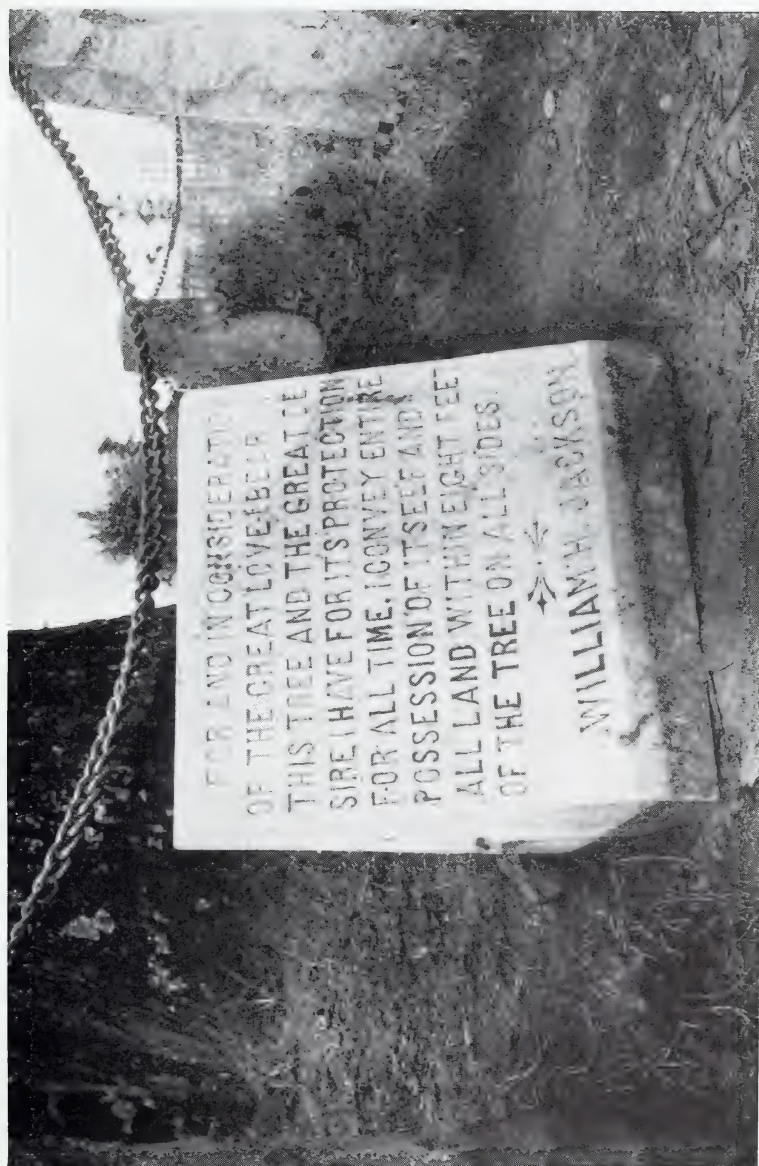 FOR AND IN CONSIDERATIO
OF THE GREAT LOVE I BEAR
THIS TREE AND THE GREAT DE
SIRE I HAVE FOR ITS PROTECTION
FOR ALL TIME, I CONVEY ENTIRE
POSSESSION OF ITSELF AND
ALL LAND WITHIN EIGHT FEET
OF THE TREE ON ALL SIDES.
WILLIAM H. JACKSON.